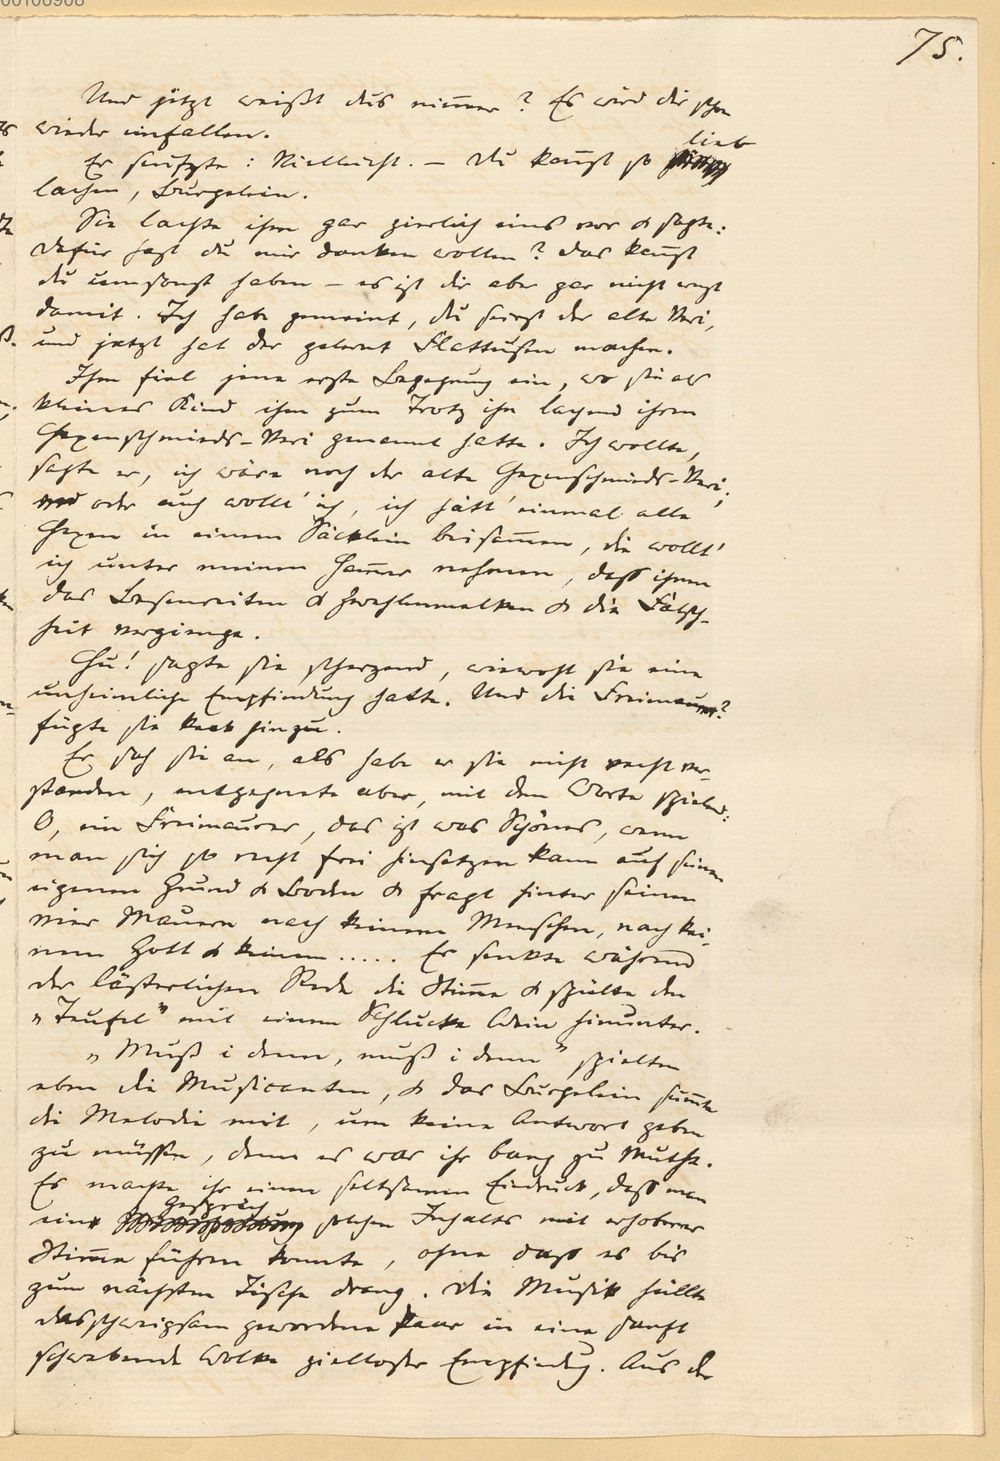 00106908
75.
Und jetzt weißt dus nimmer? Es wird dir schon
wieder einfallen.
Er seufzte: Vielleicht. – Du kannst so lieb
lachen, Burgelein.
Sie lachte ihm gar zierlich eins vor & sagte:
Dafür hast du mir danken wollen? Das kannst
du umsonst haben – es ist dir aber gar nicht ernst
damit. Ich habe gemeint, du seiest der alte Veri,
und jetzt hat der gelernt Flattusen machen.
Ihm fiel jene erste Begegnung ein, wo sie als
kleines Kind ihm zum Trotz ihn lachend ihren
Hexenschmieds-Veri genannt hatte. Ich wollte,
sagte er, ich wäre noch der alte Hexenschmieds-Veri;
oder auch wollt' ich, ich hätt' einmal alle
Hexen in einem Säcklein beisammen, die wollt'
ich unter meinen Hammer nehmen, dass ihnen
das Besenreiten & Zwehlenmelken & die Falsch-
heit vergienge.
Hu! sagte sie scherzend, wiewohl sie eine
unheimliche Empfindung hatte. Und die Freimaurer?
fügte sie keck hinzu.
Er sah sie an, als habe er sie nicht recht ver-
standen, entgegnete aber, mit dem Worte spielend:
O, ein Freimaurer, das ist was Schönes, wenn
man sich so recht frei hinsetzen kann auf seinen
eigenen Grund & Boden & fragt hinter seinen
vier Mauern nach keinem Menschen, nach kei-
nem Gott & keinem ..... Er senkte während
der lästerlichen Rede die Stimme & spülte den
„Teufel" mit einem Schlucke Wein hinunter.
„Muß i denn, muß i denn" spielten
eben die Musicanten, & das Burgelein summte
die Melodie mit, um keine Antwort geben
zu müssen, denn es war ihr bang zu Muthe.
Es machte ihr einen seltsamen Eindruck, dass man
ein Gespräch solchen Inhalts mit erhobener
Stimme führen konnte, ohne dass es bis
zum nächsten Tische drang. Die Musik hüllte
das schweigsam gewordene Paar in eine sanft
schwebende Wolke zielloser Empfindung. Aus der